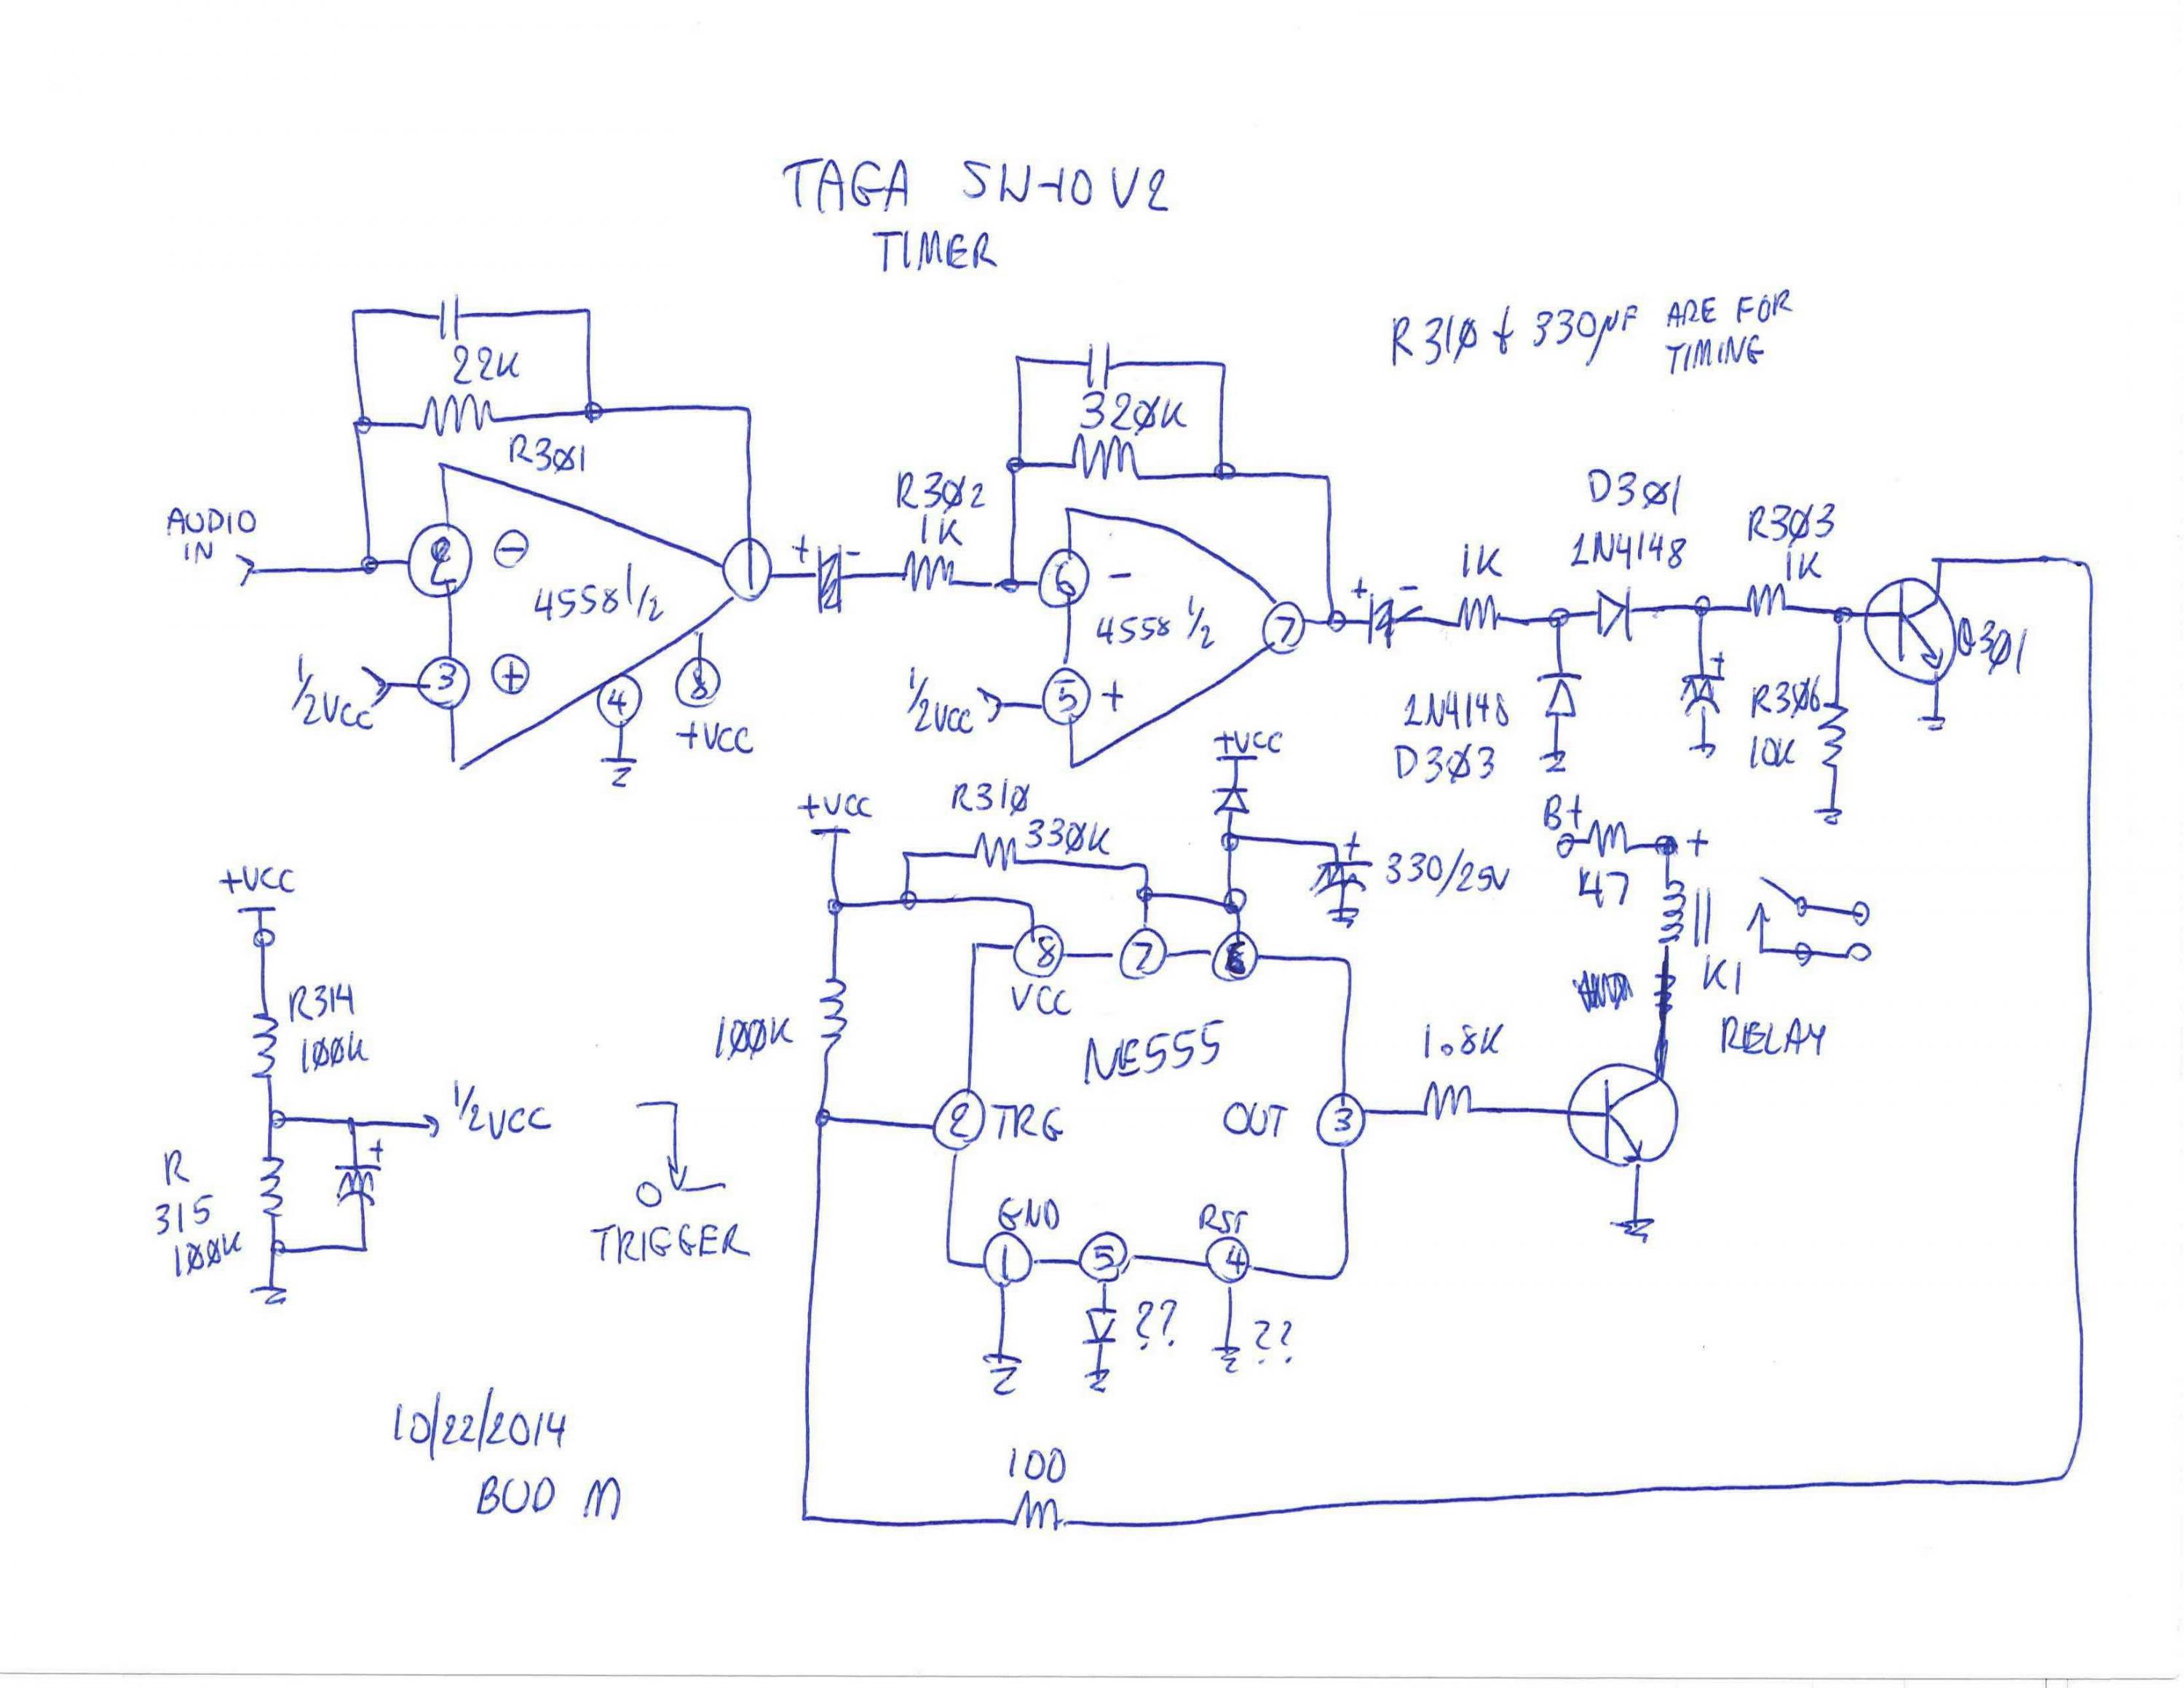 TAGA SW-10 V2
TIMER
R310 + 330µF ARE FOR
TIMING
22K
R301
AUDIO
IN
2
-
4558 1/2
1
+
-
1/2VCC
3
+
4
8
+VCC
R302
1K
320K
6
-
4558 1/2
7
1/2VCC
5
+
+
-
1K
D301
1N4148
R303
1K
Q301
1N4148
D303
+
R306
10K
+VCC
R314
100K
1/2VCC
R
315
100K
+
TRIGGER
+VCC
R310
330K
+VCC
+
330/25V
100K
8
VCC
7
6
NE555
2
TRG
OUT
3
1.8K
GND
1
5
??
RST
4
??
B+
+
47
K1
RELAY
100
10/22/2014
BUD M